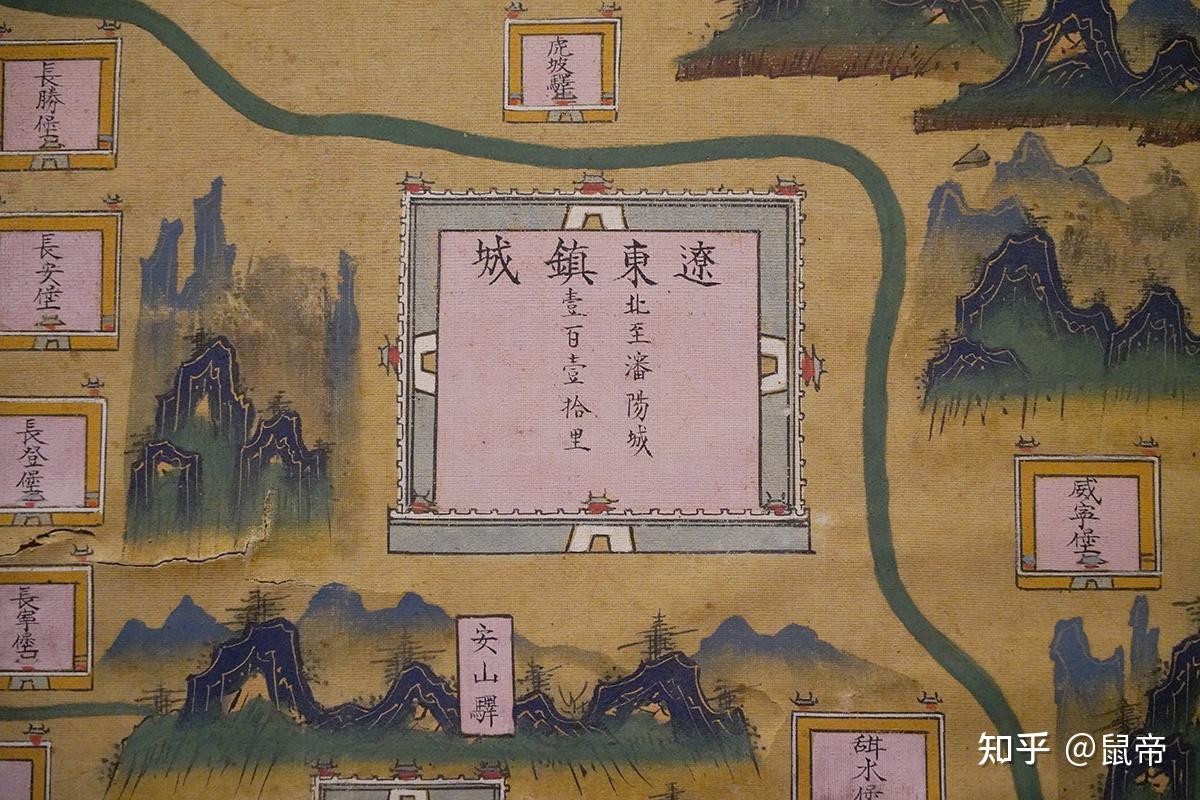 虎坡驛
長勝堡
遼東鎮城
北至瀋陽城
壹百壹拾里
長安堡
長登堡
威寧堡
長寧堡
安山驛
甜水堡
知乎 @鼠帝